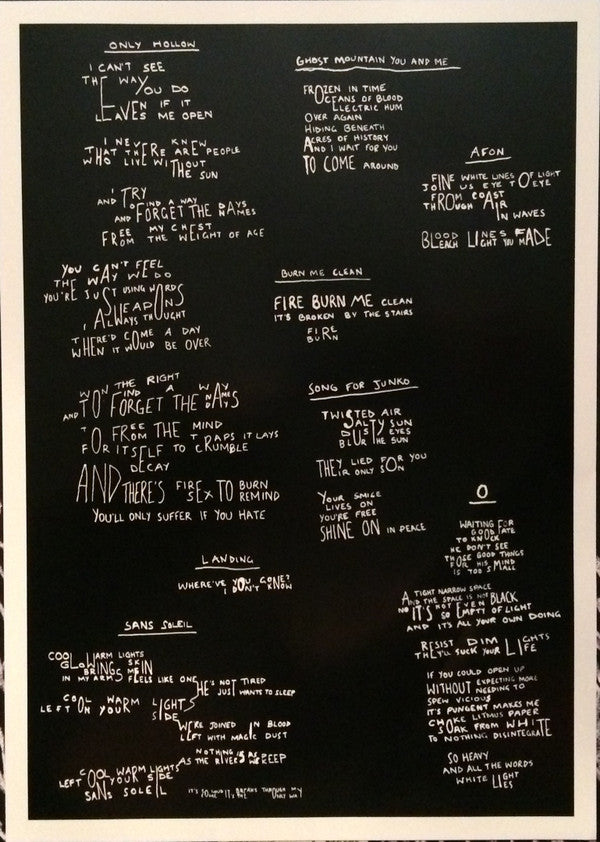 ONLY HOLLOW
I CAN'T SEE
THE WAY
YOU DO
EVEN IF IT
LEAVES ME OPEN
I NEVER KNEW
THAT THERE ARE PEOPLE
WHO LIVE WITHOUT
THE SUN
AND I TRY
TO FIND A WAY
AND FORGET THE DAYS
NAMES
FREE MY CHEST
FROM THE WEIGHT OF AGE
YOU CAN'T FEEL
THE WAY WE DO
YOU'RE JUST USING WORDS
AS WEAPONS
I ALWAYS THOUGHT
THERE'D COME A DAY
WHEN IT WOULD BE OVER
WON THE RIGHT
TO FIND A WAY
AND TO FORGET THE NAMES
DAYS
TO FREE THE MIND
FROM THE TRAPS IT LAYS
FOR ITSELF TO CRUMBLE
DECAY
AND THERE'S FIRE TO BURN
SEX TO REMIND
YOU'LL ONLY SUFFER IF YOU HATE
LANDING
WHERE'VE YOU GONE?
I DON'T KNOW
SANS SOLEIL
COOL WARM LIGHTS
GLOWING SKIN
BRINGS ME IN
IN MY ARMS FEELS LIKE ONE
HE'S NOT TIRED
HE JUST WANTS TO SLEEP
COOL WARM LIGHTS
LEFT ON YOUR SIDE
WE'RE JOINED IN BLOOD
LEFT WITH MAGIC DUST
NOTHING IS AS DEEP
AS THE RIVERS WE REEP
COOL WARM LIGHTS
LEFT ON YOUR SIDE
SANS SOLEIL
GHOST MOUNTAIN YOU AND ME
FROZEN IN TIME
OCEANS OF BLOOD
ELECTRIC HUM
OVER AGAIN
HIDING BENEATH
ACRES OF HISTORY
AND I WAIT FOR YOU
TO COME AROUND
BURN ME CLEAN
FIRE BURN ME CLEAN
IT'S BROKEN BY THE STAIRS
FIRE
BURN
SONG FOR JUNKO
TWISTED AIR
SALTY SUN
DUSTY EYES
BLUR THE SUN
THEY LIED FOR YOU
THEIR ONLY SON
YOUR SMILE
LIVES ON
YOU'RE FREE
SHINE ON IN PEACE
AFON
FINE WHITE LINES OF LIGHT
JOIN US EYE TO EYE
FROM COAST
THROUGH AIR
IN WAVES
BLOOD LINES FADE
BLEACH LIGHT YOU MADE
O
WAITING FOR
GOOD FATE
TO KNOCK
HE DON'T SEE
THOSE GOOD THINGS
FOR HIS MIND
IS TOO SMALL
A TIGHT NARROW SPACE
AND THE SPACE IS NOT BLACK
NO IT'S NOT EVEN
SO EMPTY OF LIGHT
AND IT'S ALL YOUR OWN DOING
RESIST DIM LIGHTS
THEY'LL SUCK YOUR LIFE
IF YOU COULD OPEN UP
WITHOUT EXPECTING MORE
NEEDING TO
SPEW VICIOUS
IT'S PUNGENT MAKES ME
CHOKE LITMUS PAPER
SOAK FROM WHITE
TO NOTHING DISINTEGRATE
SO HEAVY
AND ALL THE WORDS
WHITE LIGHT
LIES